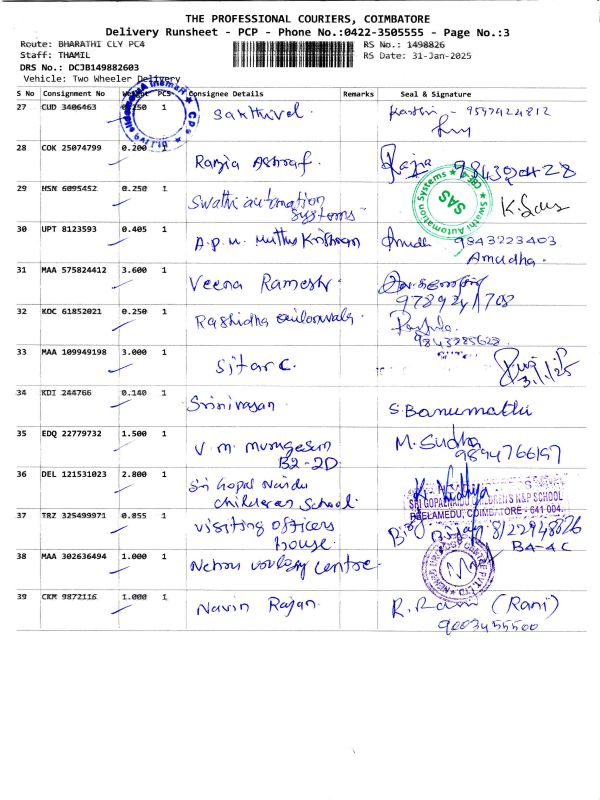 THE PROFESSIONAL COURIERS, COIMBATORE
Delivery Runsheet - PCP - Phone No.:0422-3505555 - Page No.:3
Route: BHARATHI CLY PC4 RS No.: 1498826
Staff: THAMIL RS Date: 31-Jan-2025
DRS No.: DCJB149882603
Vehicle: Two Wheeler Delivery
S No Consignment No Weight PCS Consignee Details Remarks Seal & Signature
27 CUD 3406463 0.250 1 Sakthivel
28 COK 25074799 0.200 1 Razia Ashraf. Razia
29 HSN 6095452 0.250 1 Swathi automation
Systems Swathi Automation Systems SAS
30 UPT 8123593 0.405 1 A.P.U. Muthu Krishnan 9843223403
Amudha.
31 MAA 575824412 3.600 1 Veena Ramesh.
32 KOC 61852021 0.250 1 Rashidha
33 MAA 109949198 3.000 1 Sitar C.
34 KDI 244766 0.140 1 Srinivasan S. Banumathi
35 EDQ 22779732 1.500 1 V.M. Murugesan M. Sudha
B2-2D. 9894766197
36 DEL 121531023 2.800 1 Sri Gopal Naidu K. Vidhya
childeras School. SRI GOPAL NAIDU CHILDREN'S N&P SCHOOL
PEELAMEDU, COIMBATORE - 641 004.
37 TRZ 325499971 0.855 1 visiting officers
house. BA-4C
38 MAA 302636494 1.000 1 Nehru urology centre.
39 CKM 9872116 1.000 1 Navin Rajan. R. Rani (Rani)
9003455500